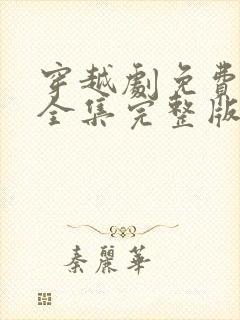 穿越劇免費
全集完整版
秦麗華